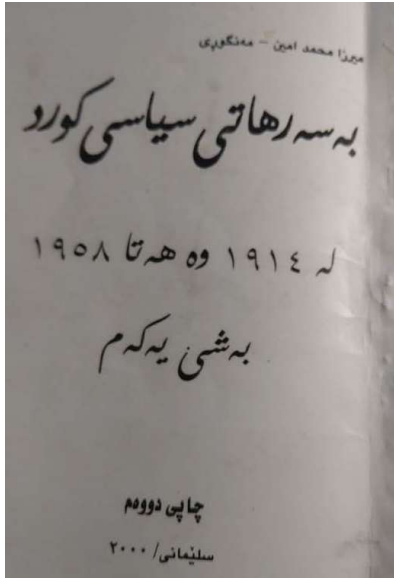 میرزا محمد امین - مەنگوڕی
بەسەرهاتی سیاسی کورد
لە ١٩١٤ وە هەتا ١٩٥٨
بەشی یەکەم
چاپی دووەم
سلێمانی/ ٢٠٠٠